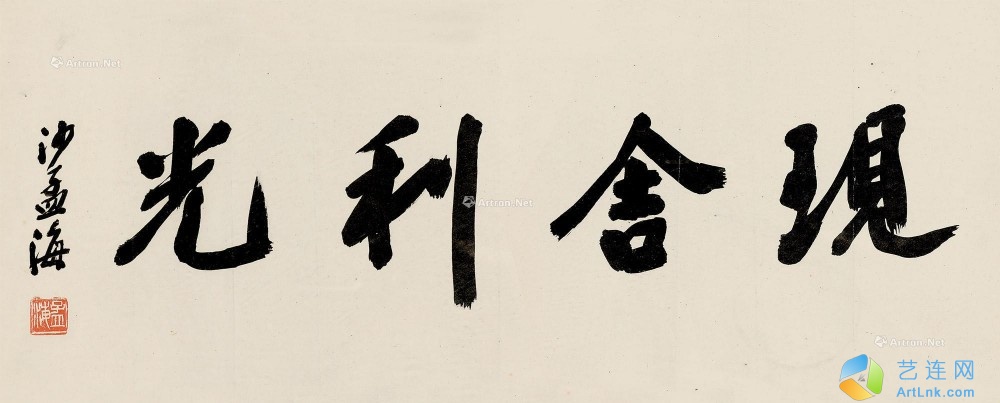 現舍利光
沙孟海
孟海
Artron.Net
Artron.Net
Artron.Net
艺连网
ArtLnk.com